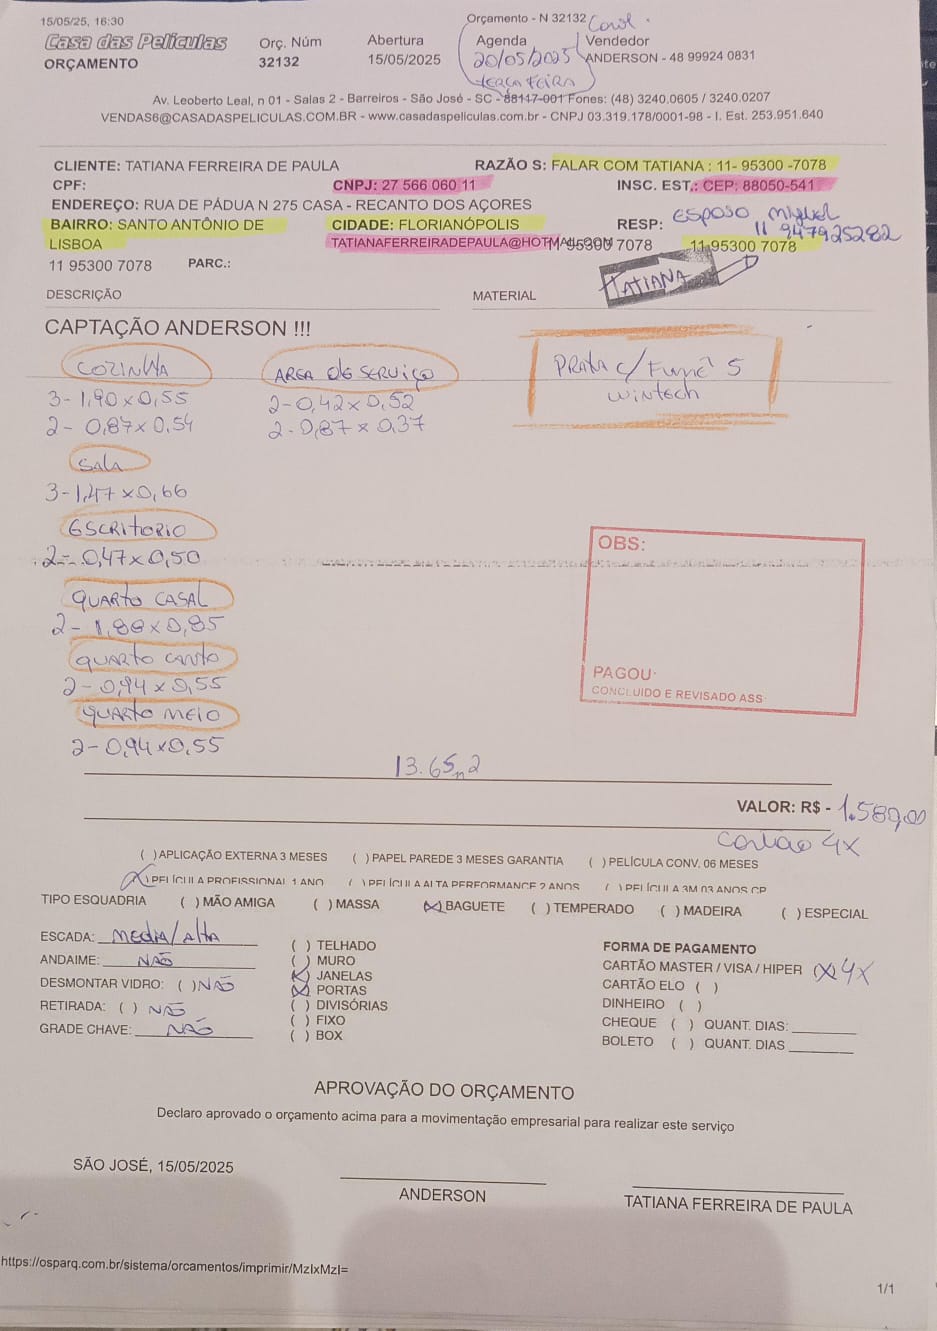 15/05/25, 16:30
Orçamento - N 32132 Carol.
Casa das Películas
Orç. Núm
Abertura
Agenda
Vendedor
ORÇAMENTO
32132
15/05/2025
20/05/2025
ANDERSON - 48 99924 0831
TERÇA FEIRA
Av. Leoberto Leal, n 01 - Salas 2 - Barreiros - São José - SC - 88117-001 Fones: (48) 3240.0605 / 3240.0207
VENDAS6@CASADASPELICULAS.COM.BR - www.casadaspeliculas.com.br - CNPJ 03.319.178/0001-98 - I. Est. 253.951.640
CLIENTE: TATIANA FERREIRA DE PAULA
RAZÃO S: FALAR COM TATIANA : 11- 95300 -7078
CPF:
CNPJ: 27 566 060 11
INSC. EST.: CEP: 88050-541
ENDEREÇO: RUA DE PÁDUA N 275 CASA - RECANTO DOS AÇORES
BAIRRO: SANTO ANTÔNIO DE LISBOA
CIDADE: FLORIANÓPOLIS
RESP: Esposo Miguel
11 947925282
TATIANAFERREIRADEPAULA@HOTMAIL.COM
95300 7078
11 95300 7078
11 95300 7078
PARC.:
TATIANA
DESCRIÇÃO
MATERIAL
CAPTAÇÃO ANDERSON !!!
COZINHA
3- 1,90 x 0,55
2- 0,87 x 0,54
AREA DE SERVIÇO
2- 0,42 x 0,52
2- 0,87 x 0,37
PRATA c/ Fumê 5
wintech
SALA
3- 1,47 x 0,66
ESCRITORIO
2- 0,47 x 0,50
QUARTO CASAL
2- 1,88 x 0,85
QUARTO CANTO
2- 0,94 x 0,55
QUARTO MEIO
2- 0,94 x 0,55
OBS:
PAGOU:
CONCLUIDO E REVISADO ASS
13.65m2
VALOR: R$ - 1.589,00
Cartão 4X
( )APLICAÇÃO EXTERNA 3 MESES
( )PAPEL PAREDE 3 MESES GARANTIA
( )PELÍCULA CONV. 06 MESES
(X)PELÍCULA PROFISSIONAL 1 ANO
( )PELÍCULA ALTA PERFORMANCE 2 ANOS
( )PELÍCULA 3M 03 ANOS CP
TIPO ESQUADRIA
( )MÃO AMIGA
( )MASSA
(X)BAGUETE
( )TEMPERADO
( )MADEIRA
( )ESPECIAL
ESCADA: MEDIA/ALTA
ANDAIME: NÃO
DESMONTAR VIDRO: ( )NÃO
RETIRADA: ( ) NÃO
GRADE CHAVE: NÃO
( ) TELHADO
( ) MURO
(X) JANELAS
(X) PORTAS
( ) DIVISÓRIAS
( ) FIXO
( ) BOX
FORMA DE PAGAMENTO
CARTÃO MASTER / VISA / HIPER (X) 4X
CARTÃO ELO ( )
DINHEIRO ( )
CHEQUE ( ) QUANT. DIAS:
BOLETO ( ) QUANT. DIAS
APROVAÇÃO DO ORÇAMENTO
Declaro aprovado o orçamento acima para a movimentação empresarial para realizar este serviço
SÃO JOSÉ, 15/05/2025
ANDERSON
TATIANA FERREIRA DE PAULA
https://osparq.com.br/sistema/orcamentos/imprimir/MzIxMzI=
1/1